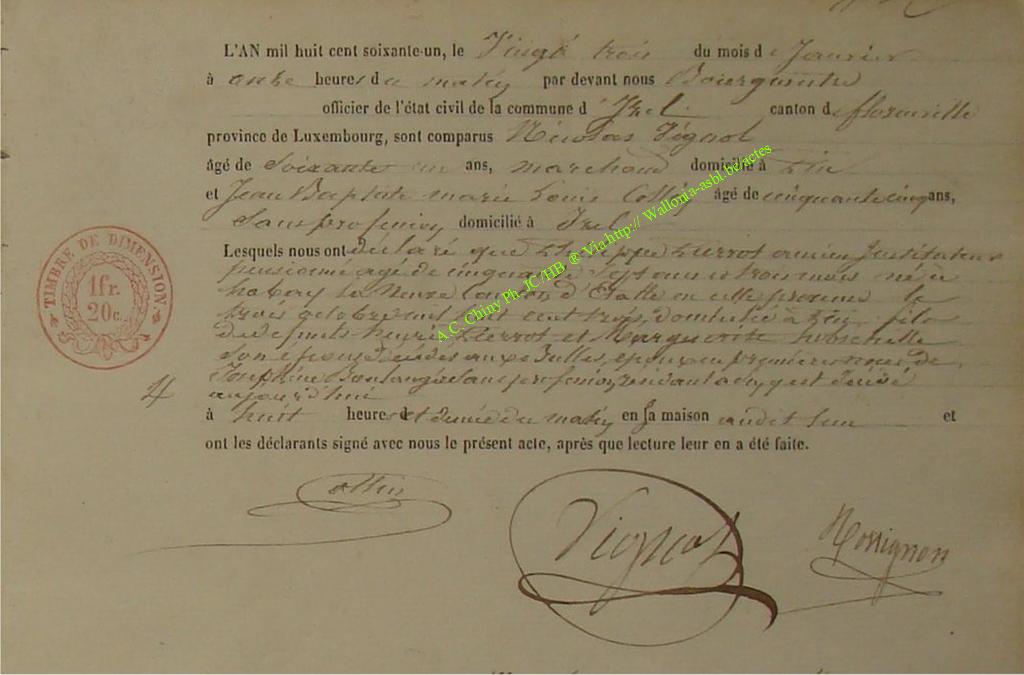 L'AN mil huit cent soixante-un, le Vingt trois du mois d e Janvier
à onze heures d u matin par devant nous Bourgmestre
officier de l'état civil de la commune d' Izel canton d e florenville
province de Luxembourg, sont comparus Nicolas Vignol
âgé de Soixante un ans, marchand domicilié à
et Jean Baptiste marie Louis Collin âgé de cinquante cinq ans,
Sans profession domicilié à Izel
Lesquels nous ont déclaré que Philippe Pierrot ancien Instituteur
pensionné agé de cinquante Sept ans et trois mois né à
habay la Neuve Canton d'Etalle en cette province le
trois octobre mil huit cent trois, domicilié à fils
de défunts henri Pierrot et Marguerite
Son epouse décédés aux Bulles, époux en premières noces de
Josephine Boulanger Sans profession, résidant a est décédé
aujourd'hui
à huit heures et demie du matin en sa maison audit lieu et
ont les déclarants signé avec nous le présent acte, après que lecture leur en a été faite.
Collin
Vignol
Rossignon
TIMBRE DE DIMENSION
1fr.
20c.
A.C. Chiny Ph. JC/HB @ Via http:// Wallonia-asbl-be/actes